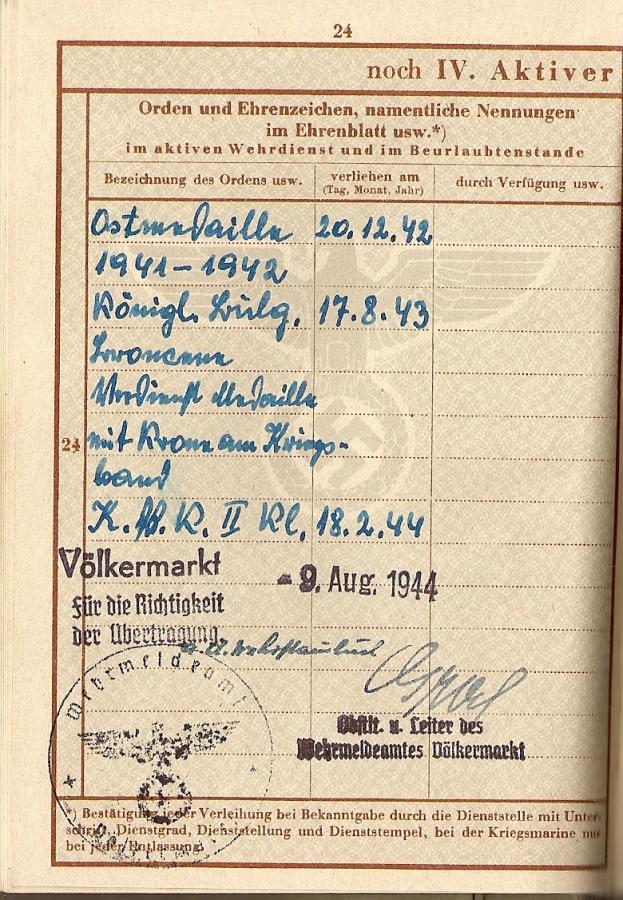 24
noch IV. Aktiver
Orden und Ehrenzeichen, namentliche Nennungen
im Ehrenblatt usw.*)
im aktiven Wehrdienst und im Beurlaubtenstande
Bezeichnung des Ordens usw.
verliehen am
(Tag, Monat, Jahr)
durch Verfügung usw.
Ostmedaille 20.12.42
1941-1942
Königl. Bulg. 17.8.43
broncene
Verdienst Medaille
24 mit Krone am Kriegs-
band
K. K. II Kl. 18.2.44
Völkermarkt
- 9. Aug. 1944
Für die Richtigkeit
der Übertragung
Obstlt. u. Leiter des
Wehrmeldeamtes Völkermarkt
Wehrmeldeamt
*) Bestätigung jeder Verleihung bei Bekanntgabe durch die Dienststelle mit Unter-
schrift, Dienstgrad, Dienststellung und Dienststempel, bei der Kriegsmarine nur
bei jeder Entlassung.